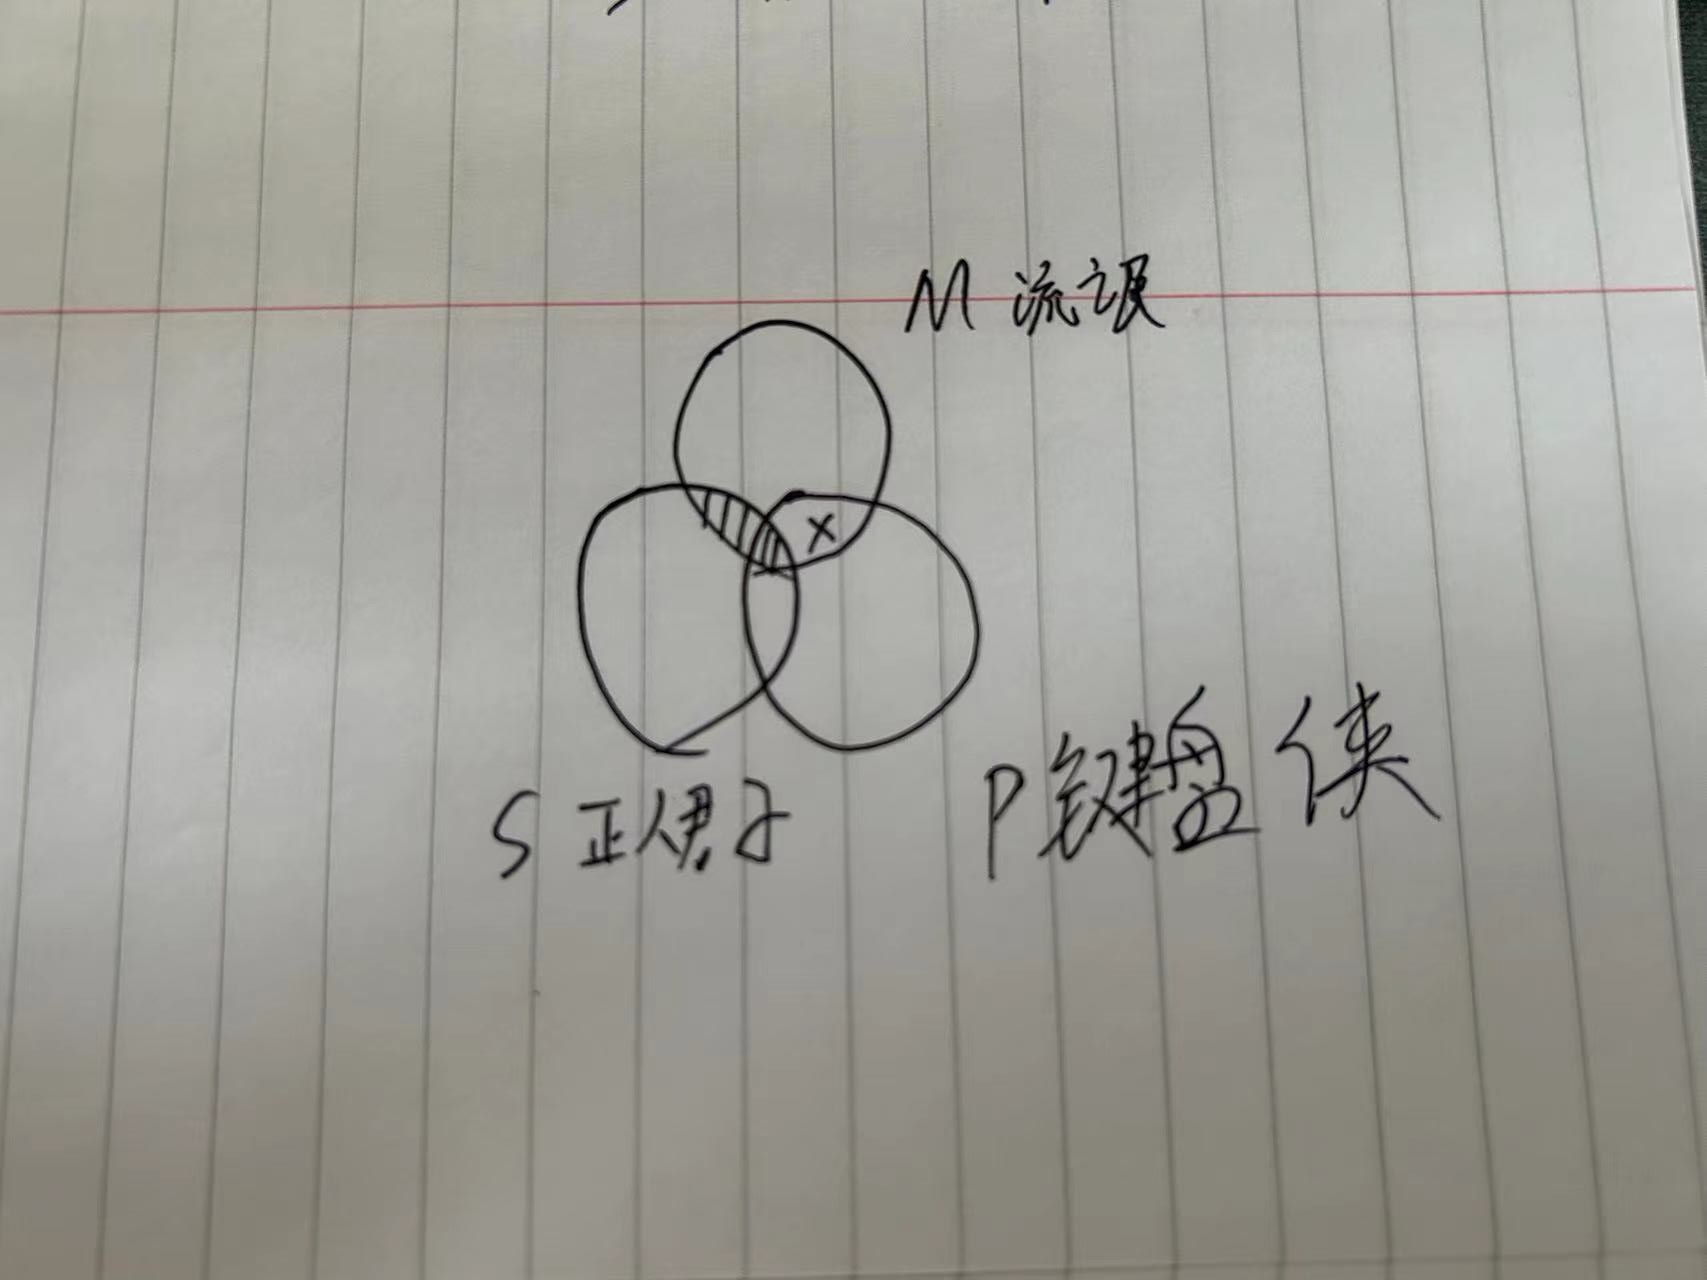 M 流氓
X
S 正人君子
P 键盘侠